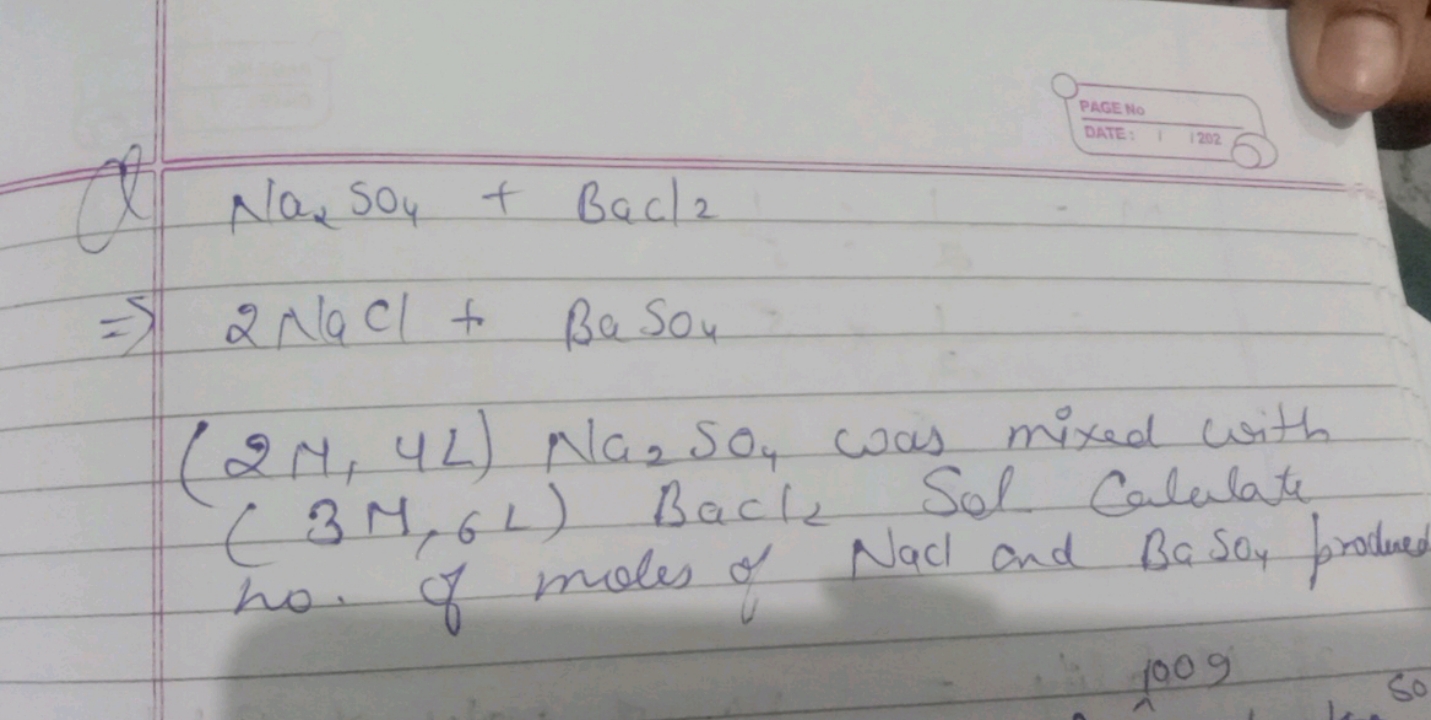 PAGE No
DATE: / /202
Q Na2SO4 + Bacl2
=> 2NaCl + BaSO4
(2M, 4L) Na2SO4 was mixed with
(3M, 6L) Bacl2 Sol Calulate
no. of moles of Nacl and BaSO4 produced
100g
50